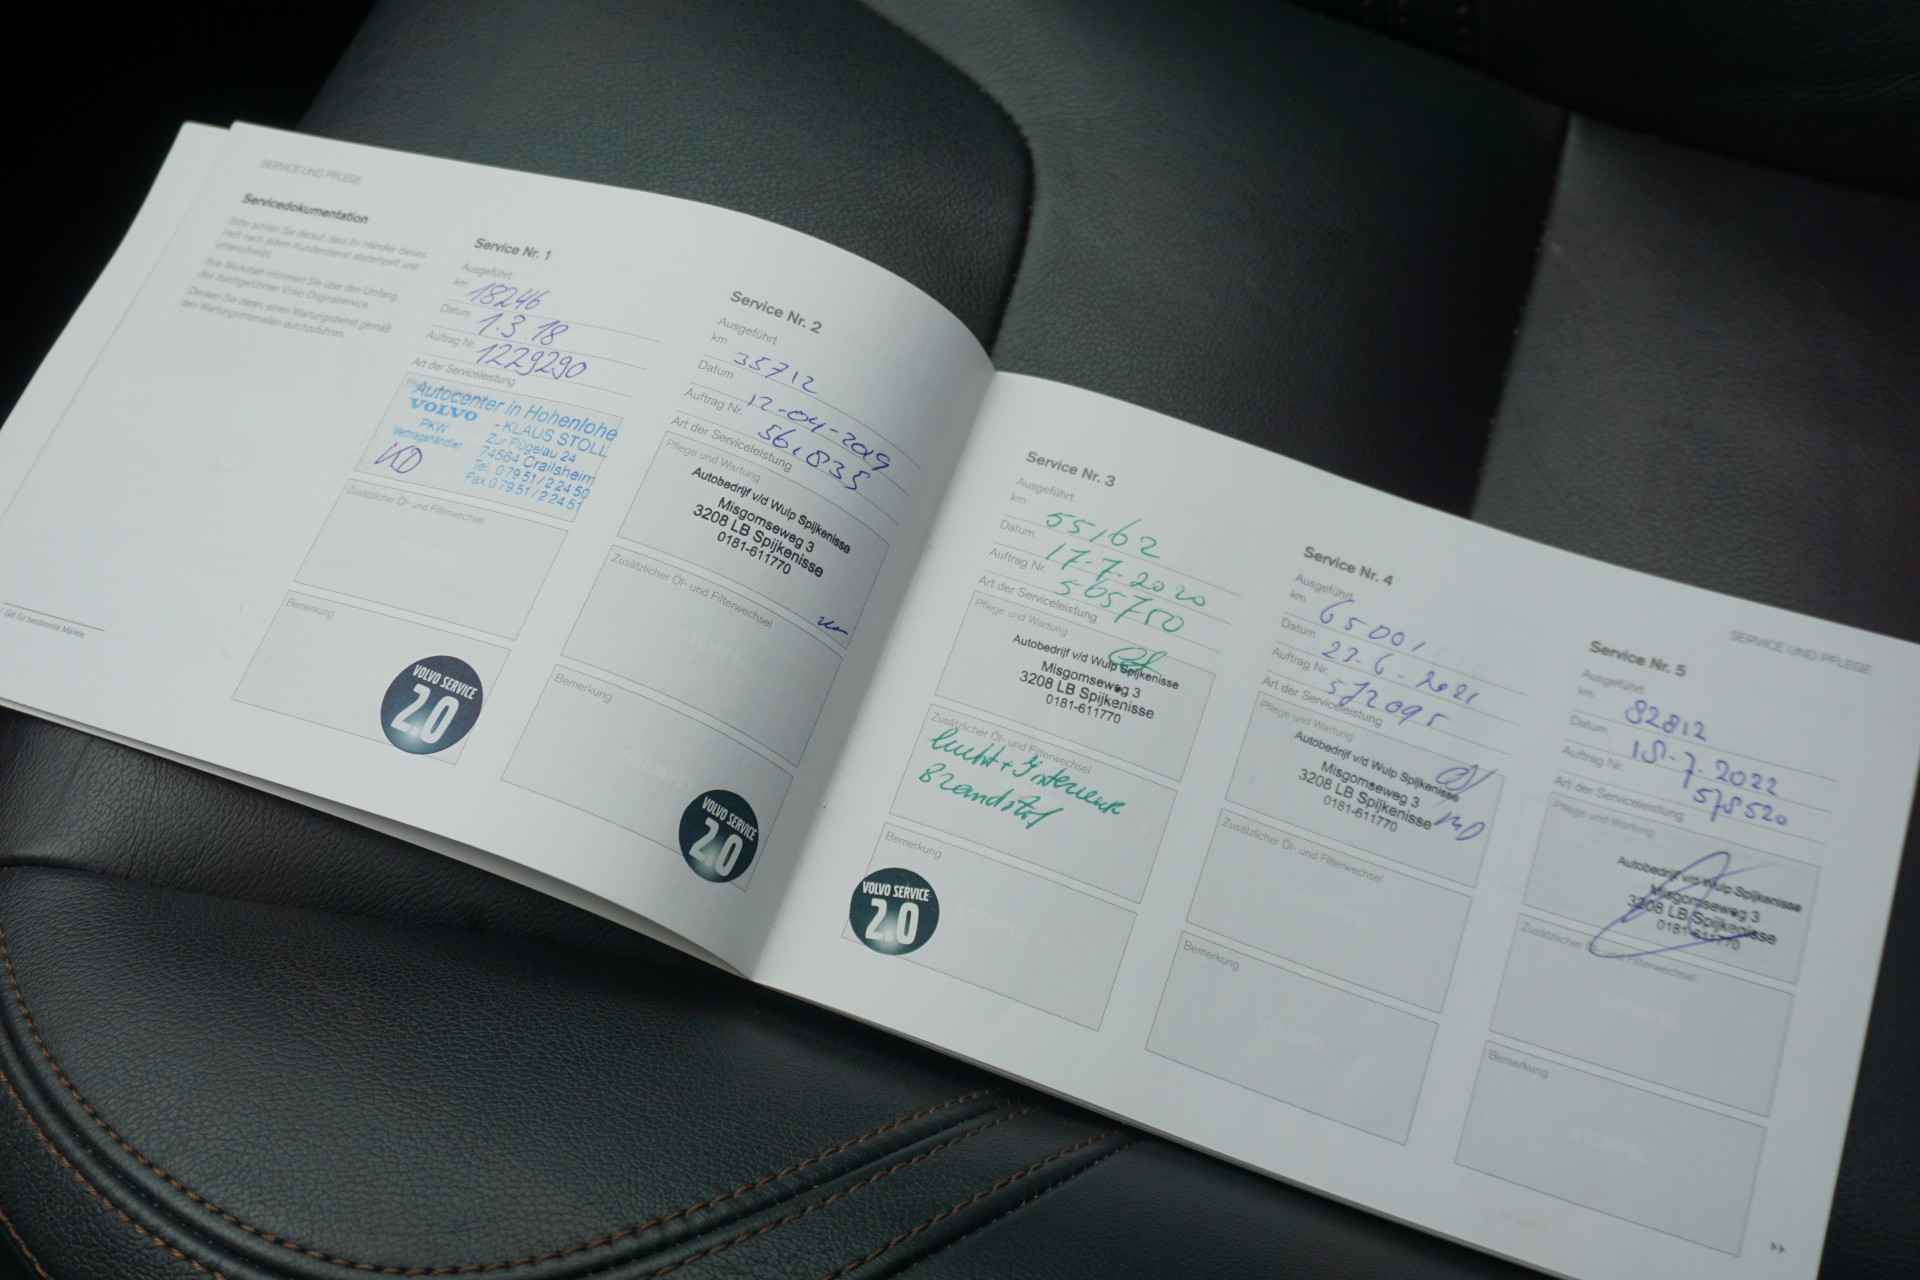 SERVICE UND PFLEGE
Servicedokumentation
Bitte achten Sie darauf, dass Ihr Händler dieses
Heft nach jedem Kundendienst abstempelt und
unterschreibt.
Ihre Werkstatt informiert Sie über den Umfang
des durchgeführten Volvo Originalservice.
Denken Sie daran, einen Wartungsdienst gemäß
den Wartungsintervallen durchzuführen.
Service Nr. 1
Ausgeführt
km 18246
Datum 1.3.18
Auftrag Nr. 1229290
Art der Serviceleistung
Autocenter in Hohenlohe
VOLVO - KLAUS STOLL
PKW Zur Flügelau 24
Vertragshändler 74564 Crailsheim
Tel. 0 79 51 / 2 24 50
Fax 0 79 51 / 2 24 51
Zusätzlicher Öl- und Filterwechsel
Bemerkung
VOLVO SERVICE
2.0
Service Nr. 2
Ausgeführt
km 35712
Datum 12-04-2019
Auftrag Nr. 561835
Art der Serviceleistung
Pflege und Wartung
Autobedrijf v/d Wulp Spijkenisse
Misgomseweg 3
3208 LB Spijkenisse
0181-611770
Zusätzlicher Öl- und Filterwechsel
Bemerkung
VOLVO SERVICE
2.0
Service Nr. 3
Ausgeführt
km 55162
Datum 17-7-2020
Auftrag Nr. 565750
Art der Serviceleistung
Pflege und Wartung
Autobedrijf v/d Wulp Spijkenisse
Misgomseweg 3
3208 LB Spijkenisse
0181-611770
Zusätzlicher Öl- und Filterwechsel
lucht + Interieur
Brandstof
Bemerkung
VOLVO SERVICE
2.0
Service Nr. 4
Ausgeführt
km 65001
Datum 23-6-2021
Auftrag Nr. 572095
Art der Serviceleistung
Pflege und Wartung
Autobedrijf v/d Wulp Spijkenisse
Misgomseweg 3
3208 LB Spijkenisse
0181-611770
Zusätzlicher Öl- und Filterwechsel
Bemerkung
SERVICE UND PFLEGE
Service Nr. 5
Ausgeführt
km 82812
Datum 15-7-2022
Auftrag Nr. 578520
Art der Serviceleistung
Pflege und Wartung
Autobedrijf v/d Wulp Spijkenisse
Misgomseweg 3
3208 LB Spijkenisse
0181-611770
Zusätzlicher Öl- und Filterwechsel
Bemerkung
Gilt für bestimmte Märkte.